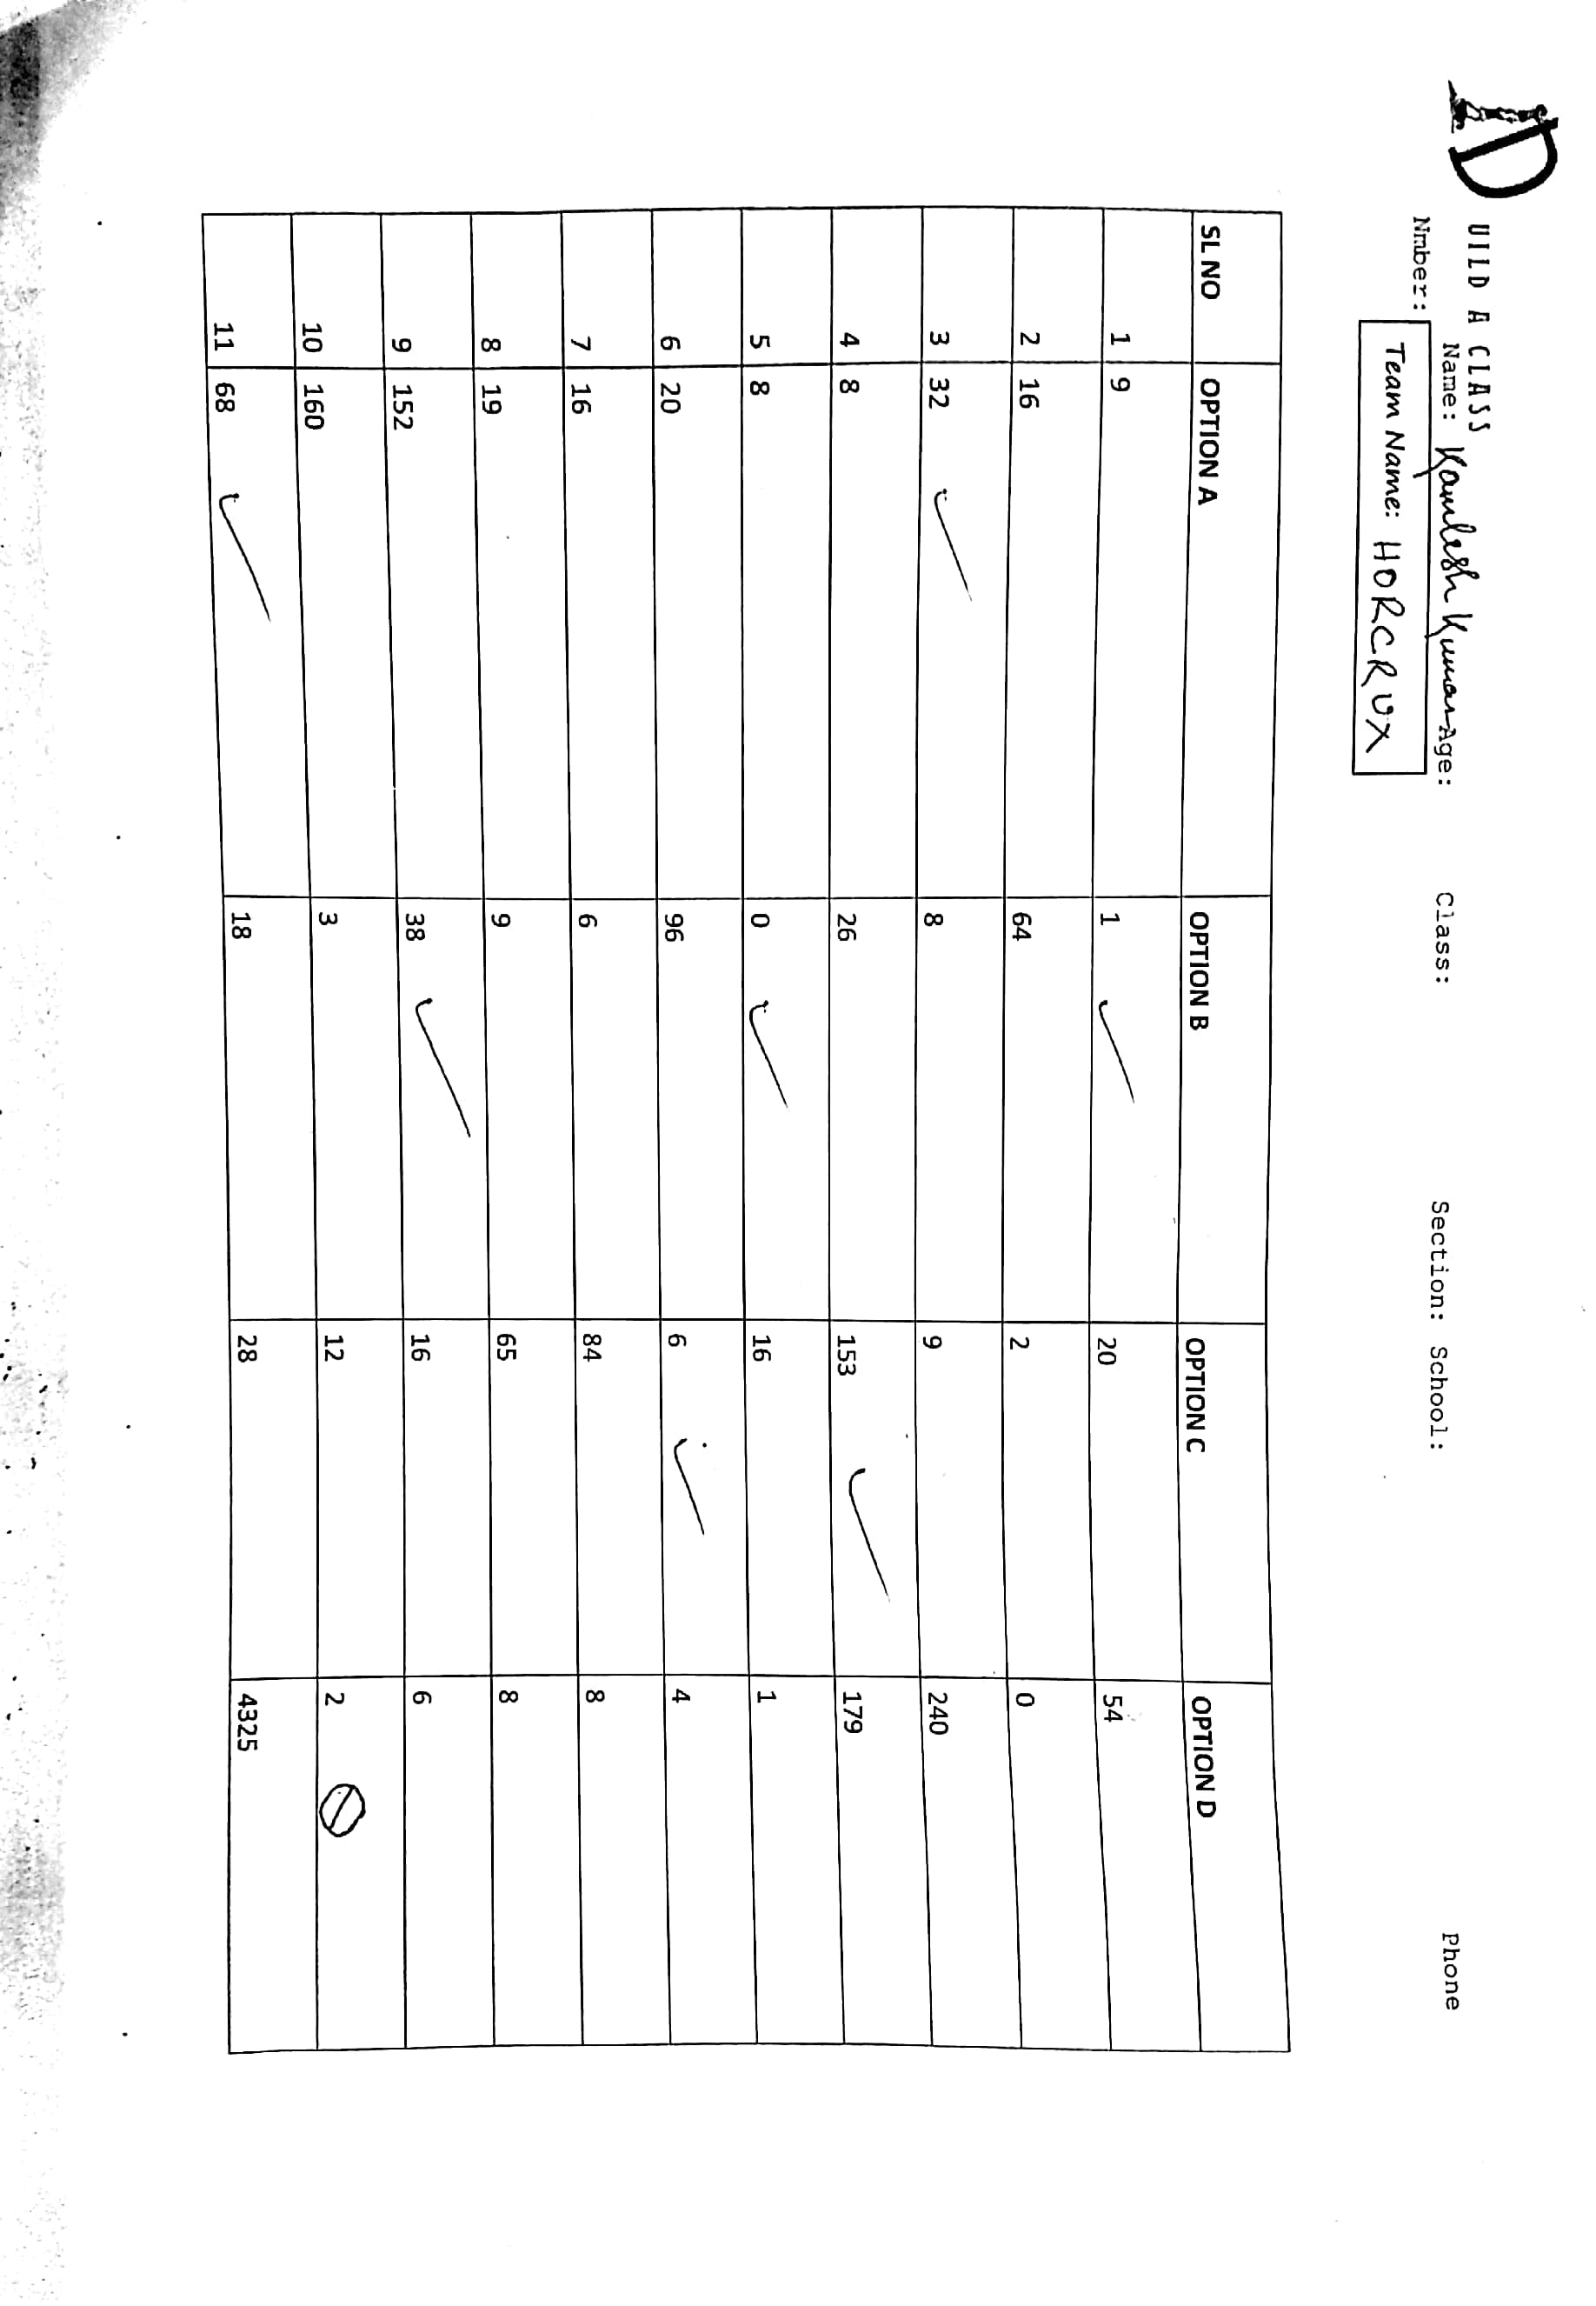 D UILD A CLASS
Name: Kamlesh Kumar Age: Class: Section: School: Phone
Nmber:
Team Name: HORCRUX
SL NO OPTION A OPTION B OPTION C OPTION D
1 9 1 ✓ 20 54
2 16 64 2 0
3 32 ✓ 8 9 240
4 8 26 153 ✓ 179
5 8 0 ✓ 16 1
6 20 96 6 ✓ 4
7 16 6 84 8
8 19 9 65 8
9 152 38 ✓ 16 6
10 160 3 12 2
11 68 ✓ 18 28 4325